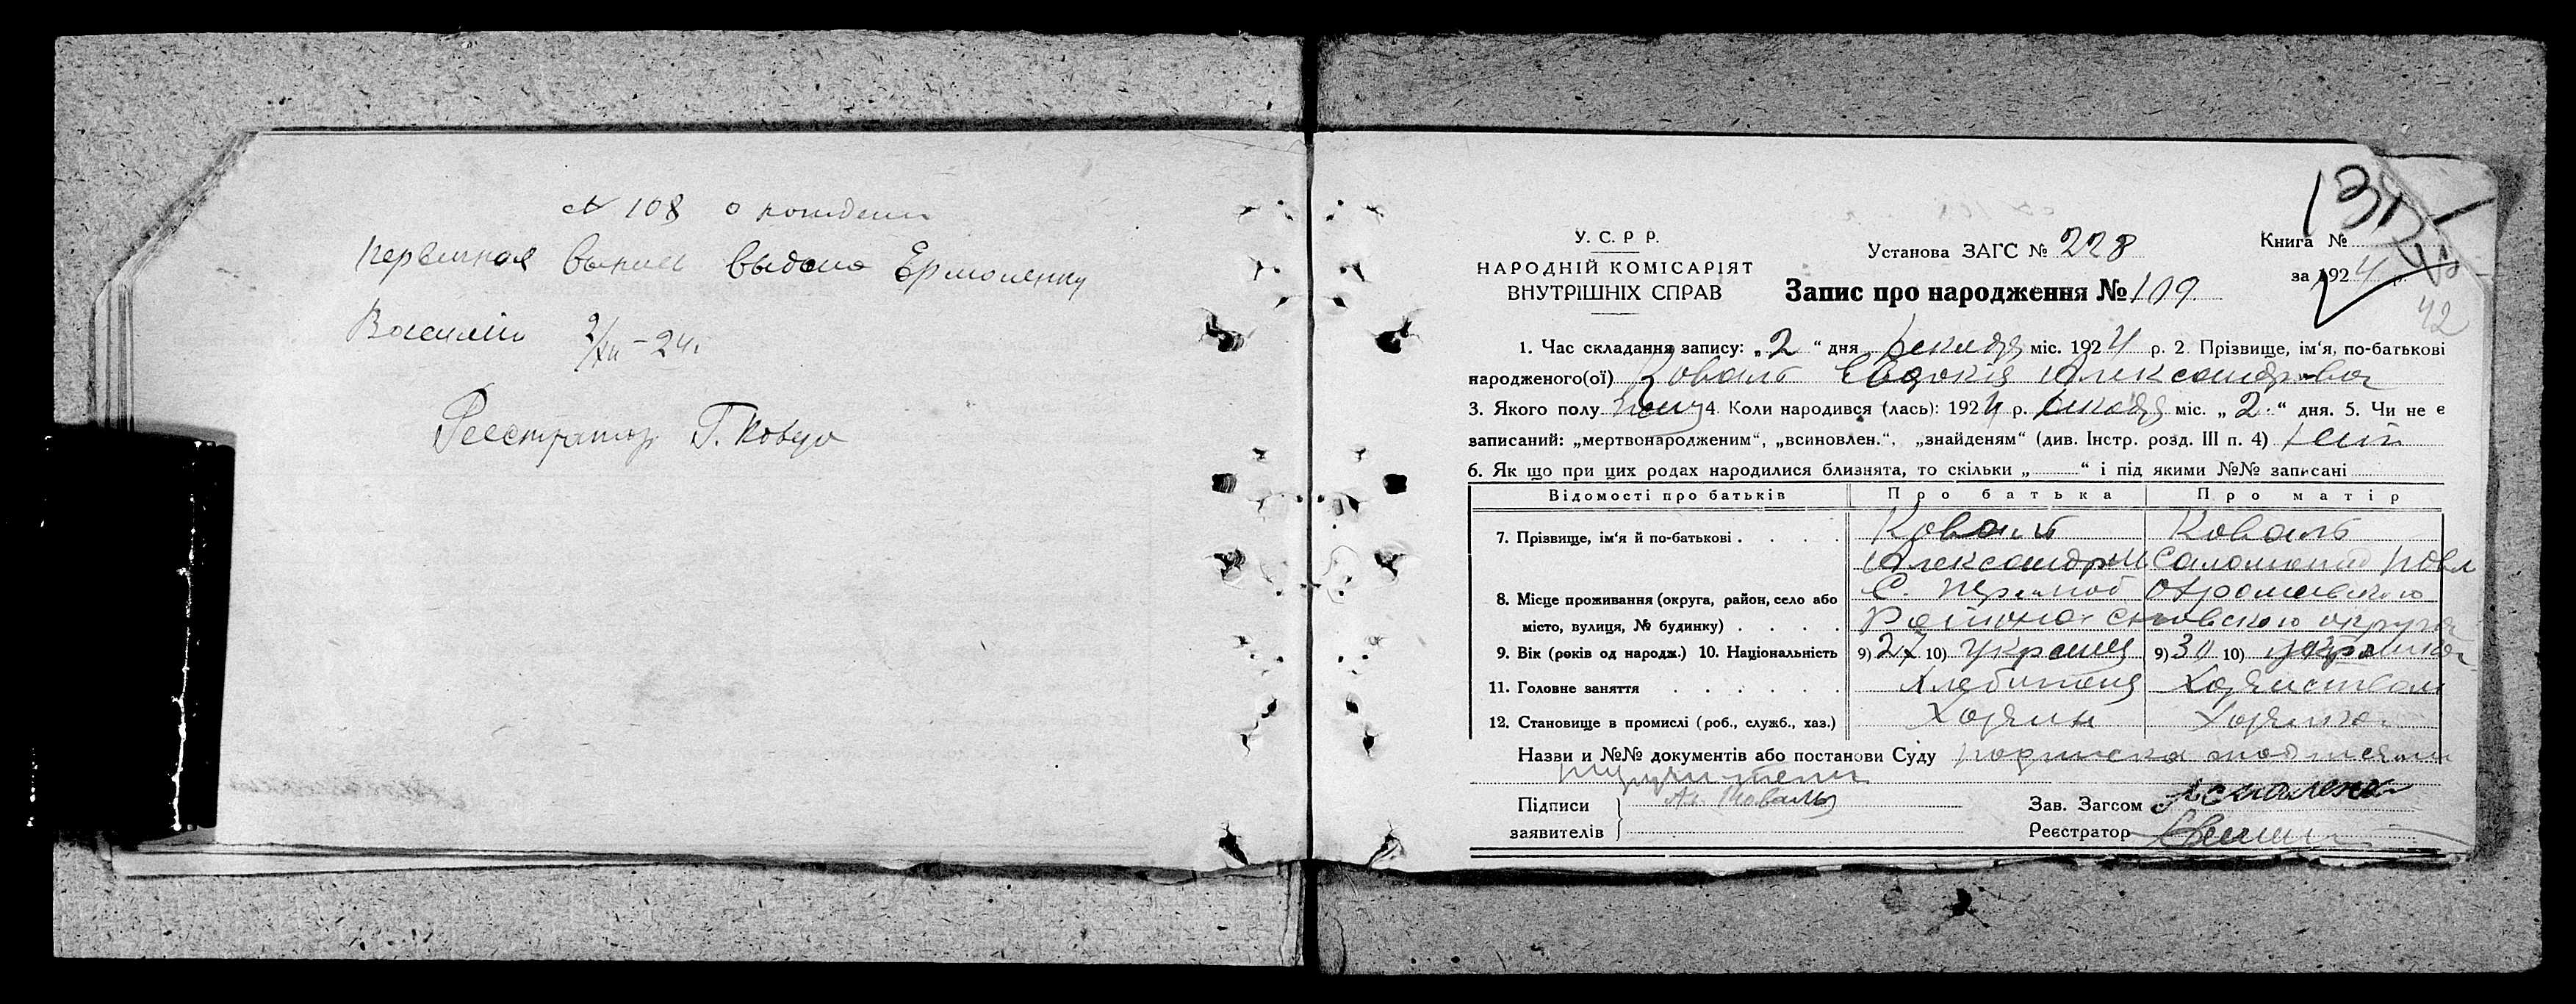 № 108 о рождении
Первичная выпис выдана Ермоленку
Василию 2/XII-24г
Реестратор Г. Ковер
У. С. Р Р.
НАРОДНІЙ КОМІСАРІЯТ
ВНУТРІШНІХ СПРАВ
Установа ЗАГС № 228
Запис про народження № 109
Книга №
за 1924 р.
42
1. Час складання запису: „2“ дня Декабря міс. 1924 р. 2. Прізвище, ім‘я, по-батькові
народженого(ої) Коваль Евдокія Александровна
3. Якого полу Жен 4. Коли народився (лась): 1924 р. Декабря міс. „2“ дня. 5. Чи не є
записаний: „мертвонародженим“, „всиновлен.“, „знайденям“ (див. Інстр. розд. III п. 4)
6. Як що при цих родах народилися близнята, то скільки „ “ і під якими №№ записані
Відомості про батьків Про батька Про матір
7. Прізвище, ім‘я й по-батькові Коваль Коваль
Александр М Саломонид Павл
8. Місце проживання (округа, район, село або С.
місто, вулиця, № будинку) Района Сновского округа
9. Вік (років од народж.) 10. Національність 9) 27 10) Украинец 9) 30 10) Украинка
11. Головне заняття Хлебопашец Хозяйством
12. Становище в промислі (роб., служб., хаз.) Хозяин Хозяйка
Назви и №№ документів або постанови Суду подписка
Підписи Ал. Коваль
заявителів
Зав. Загсом
Реєстратор